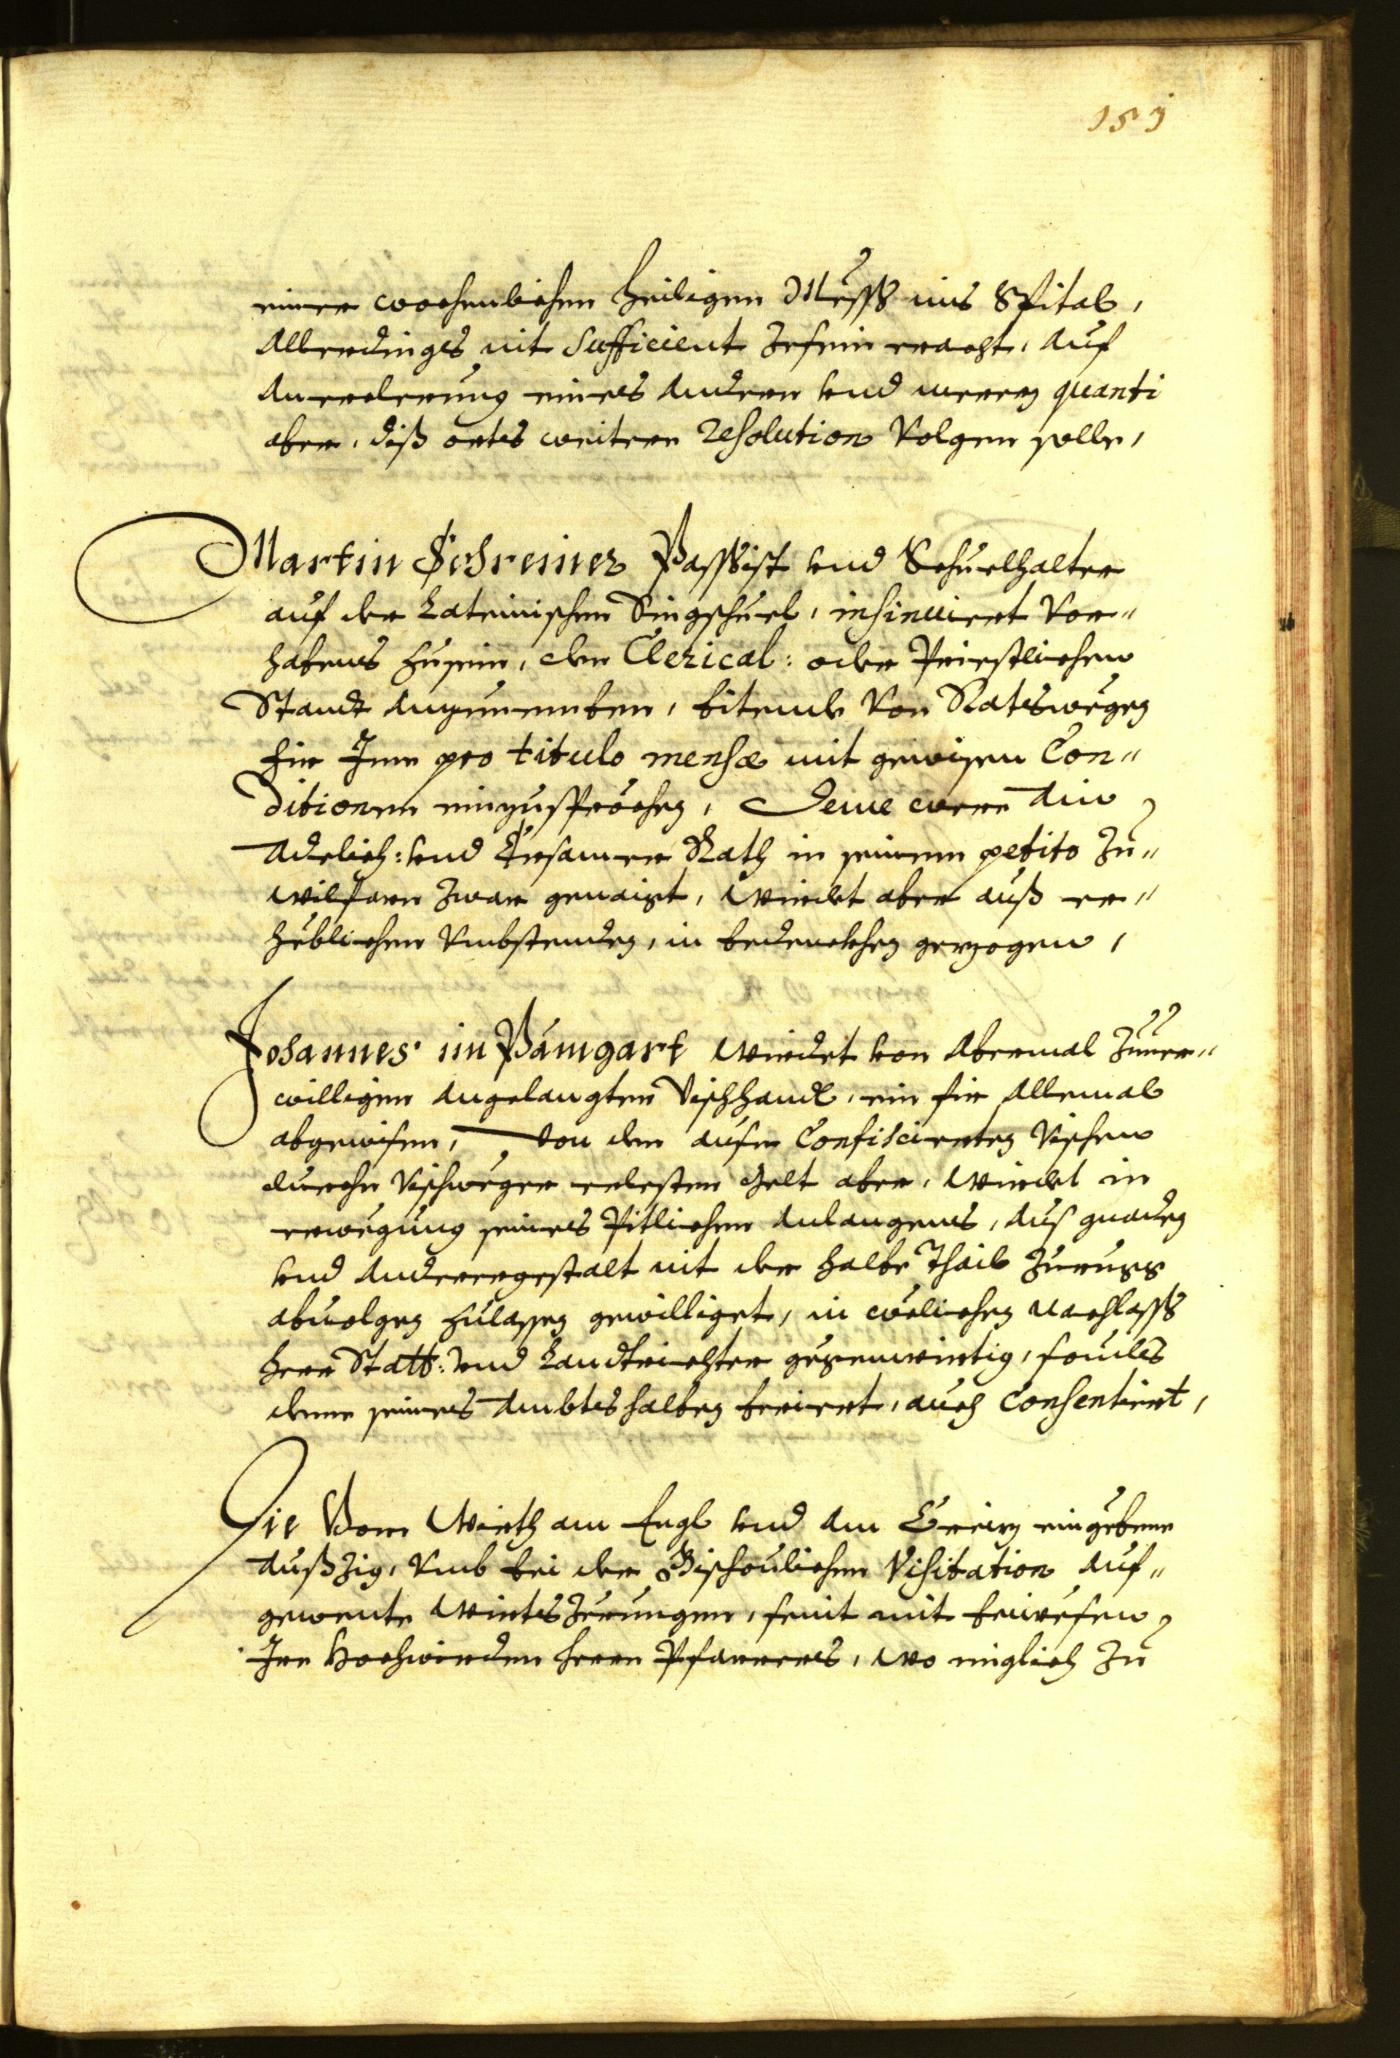 151
einer wochenlichen heiligen Mëss ins Spital,
allerdinges nit sufficient zesein eracht, auf
anerclerung eines andern und merern quanti
aber, diß ortes weitere resolution volgen solle,
Martin Schreiner Passist und Schuelhalter
auf der Lateinischen Singschuel, insinuiert vor„
habens zusein, den Clerical: oder Priestlichen
Standt anzunemben, bitende von Ratswëgen
für Ine pro titulo mensæ mit gewisen Con„
ditionen einzusprëchen, Deme were ain
Adelich: und Ersamer Rath in seinem petito zu„
wilfarn zwar genaigt, wirdet aber auß er„
hëblichen umbstenden, in bedenckhen gezogen,
Johannes im Pämgart wirdet von abermal zuver„
willigen angelangten Vischhandl, ein für allemal
abgewisen, von dem aufm Confiscierten Vischen
durchn Vischwëger erlesten Gelt aber, wirdet in
erwëgung seines Pitlichen anlangens, aus gnaden
und anderergestalt nit der halbe Thail zurugg
abuolgen zulassen gewilliget, in wëlichen nachlass
herr Statt: und Landtrichter gegenwirtig, souiles
deme seines Ambts halben beriert, auch Consentiert,
Die vom Wirth am Engl und am Greiffen eingebene
außzig, umb bei der Bischoulichen Visitation auf„
gewente Wirtszërungen, seint mit beiwësen
Irr Hochwirden herrn Pfarrers, wo miglich zu